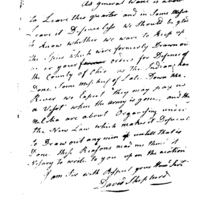 As general Wane is about
To Leave this quarter and in Some Mesur
Leave it Defenceless We Should be glad
To know whether we ware to Keep up
the Spies which were formerly Drawn out
or your orders for Defence of
the County of Ohio as the Indians has
Done Some Mischief of Late Down the
River we Expect they may pay us
a Visit when the Army is gone, and the
Militia are about Organising under
the New Law which makes it Difficult
To Draw out any men of unless that is
Done these Reasons made me think it
Nesary to write to you on the occation
I am Sir with Respect your Humb Servt
David Shepherd